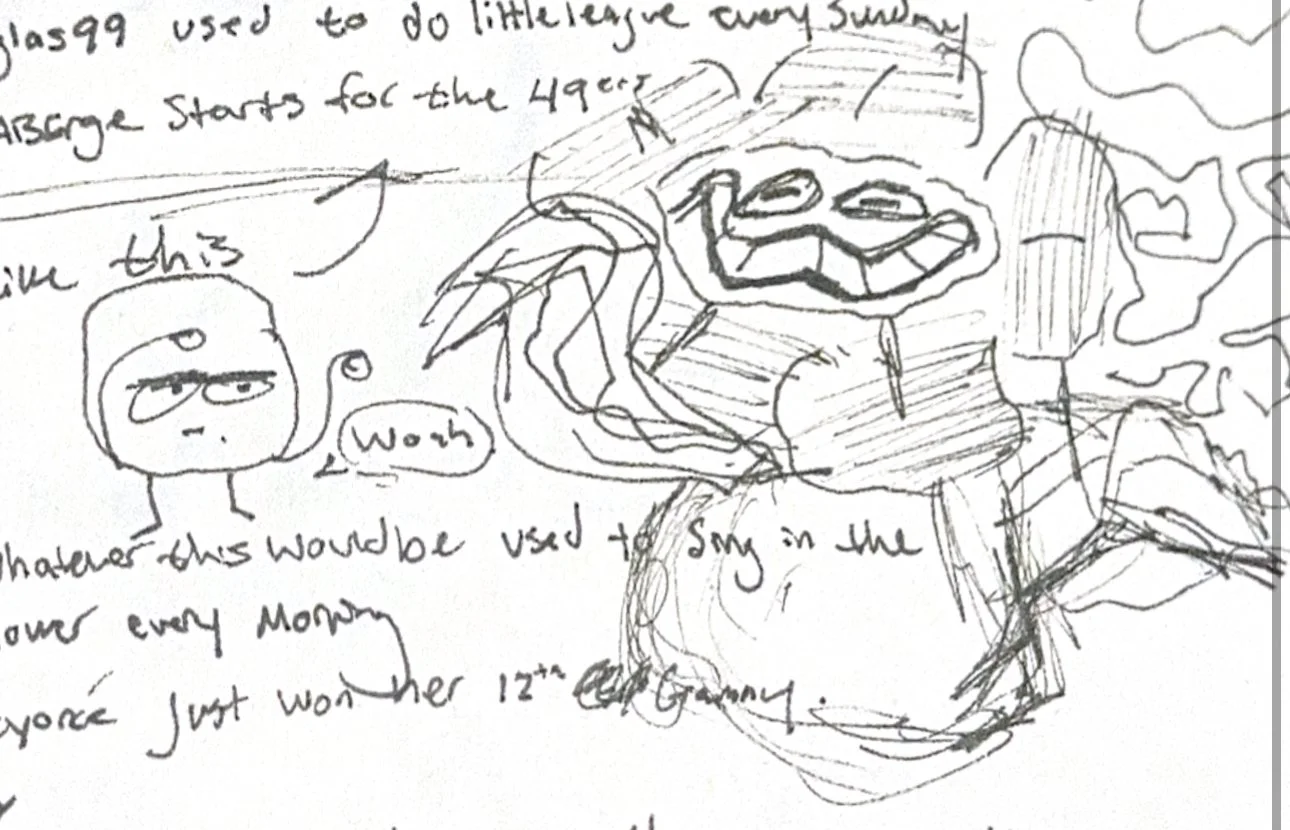 glas99 used to do little league every Sunday
ABerge Starts for the 49ers
this
Woah
whatever this would be used to Sing in the
ower every Morning
eyoncé Just won her 12th Grammy.